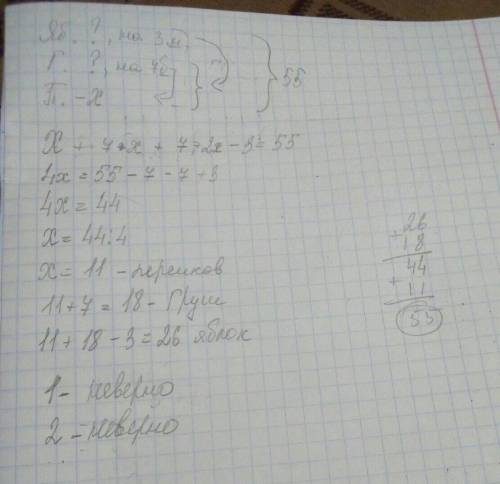 Яб. ?, на 3 м.
Г. ?, на 7б. } 55
П. - х
х + 7+х + 7+2х - 3 = 55
4х = 55 - 7 - 7 + 3
4х = 44
х = 44:4
х = 11 - персиков
11 + 7 = 18 - Груш
11 + 18 - 3 = 26 яблок
26
+ 18
44
+ 11
55
1 - неверно
2 - неверно